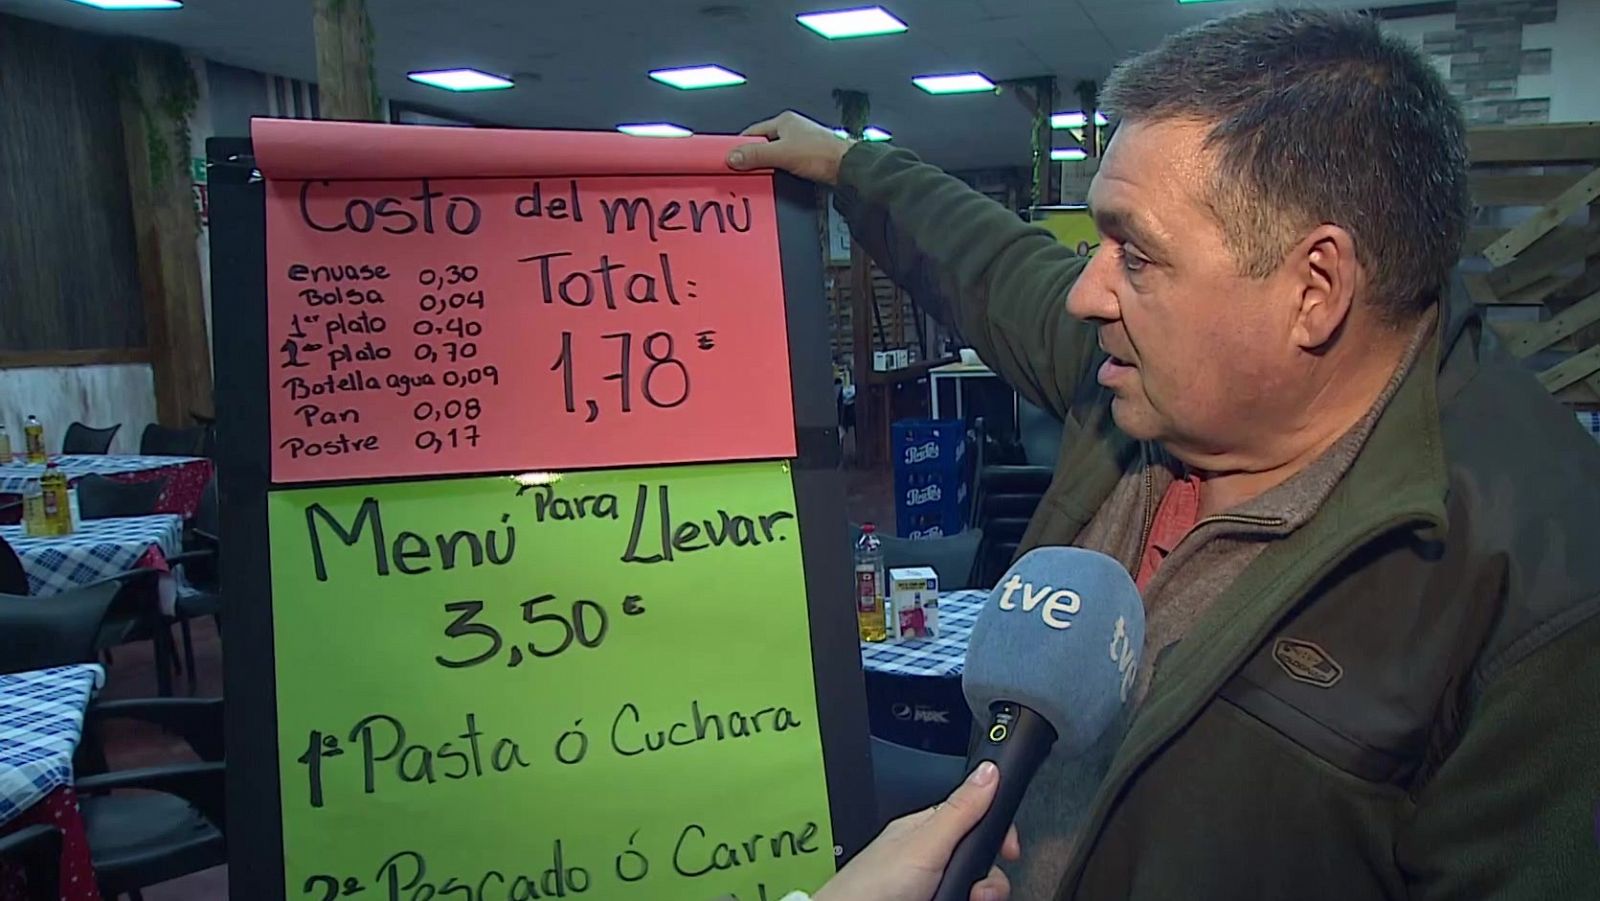 Costo del menú
envase 0,30
Bolsa 0,04
1er plato 0,40
2do plato 0,70
Botella agua 0,09
Pan 0,08
Postre 0,17
Total:
1,78€
Menú Para Llevar.
3,50€
1º Pasta ó Cuchara
2º Pescado ó Carne
tve
tve
MAX